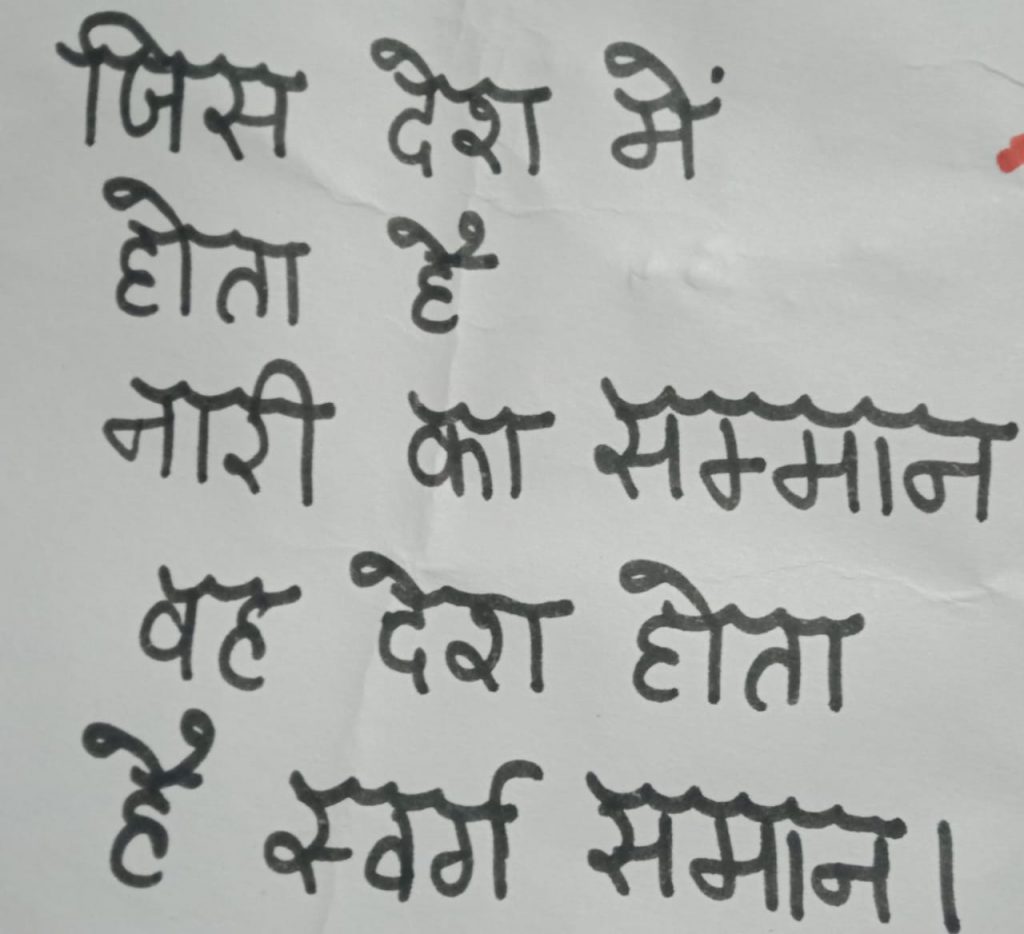 जिस देश में
होता है
नारी का सम्मान
वह देश होता
है स्वर्ग समान।